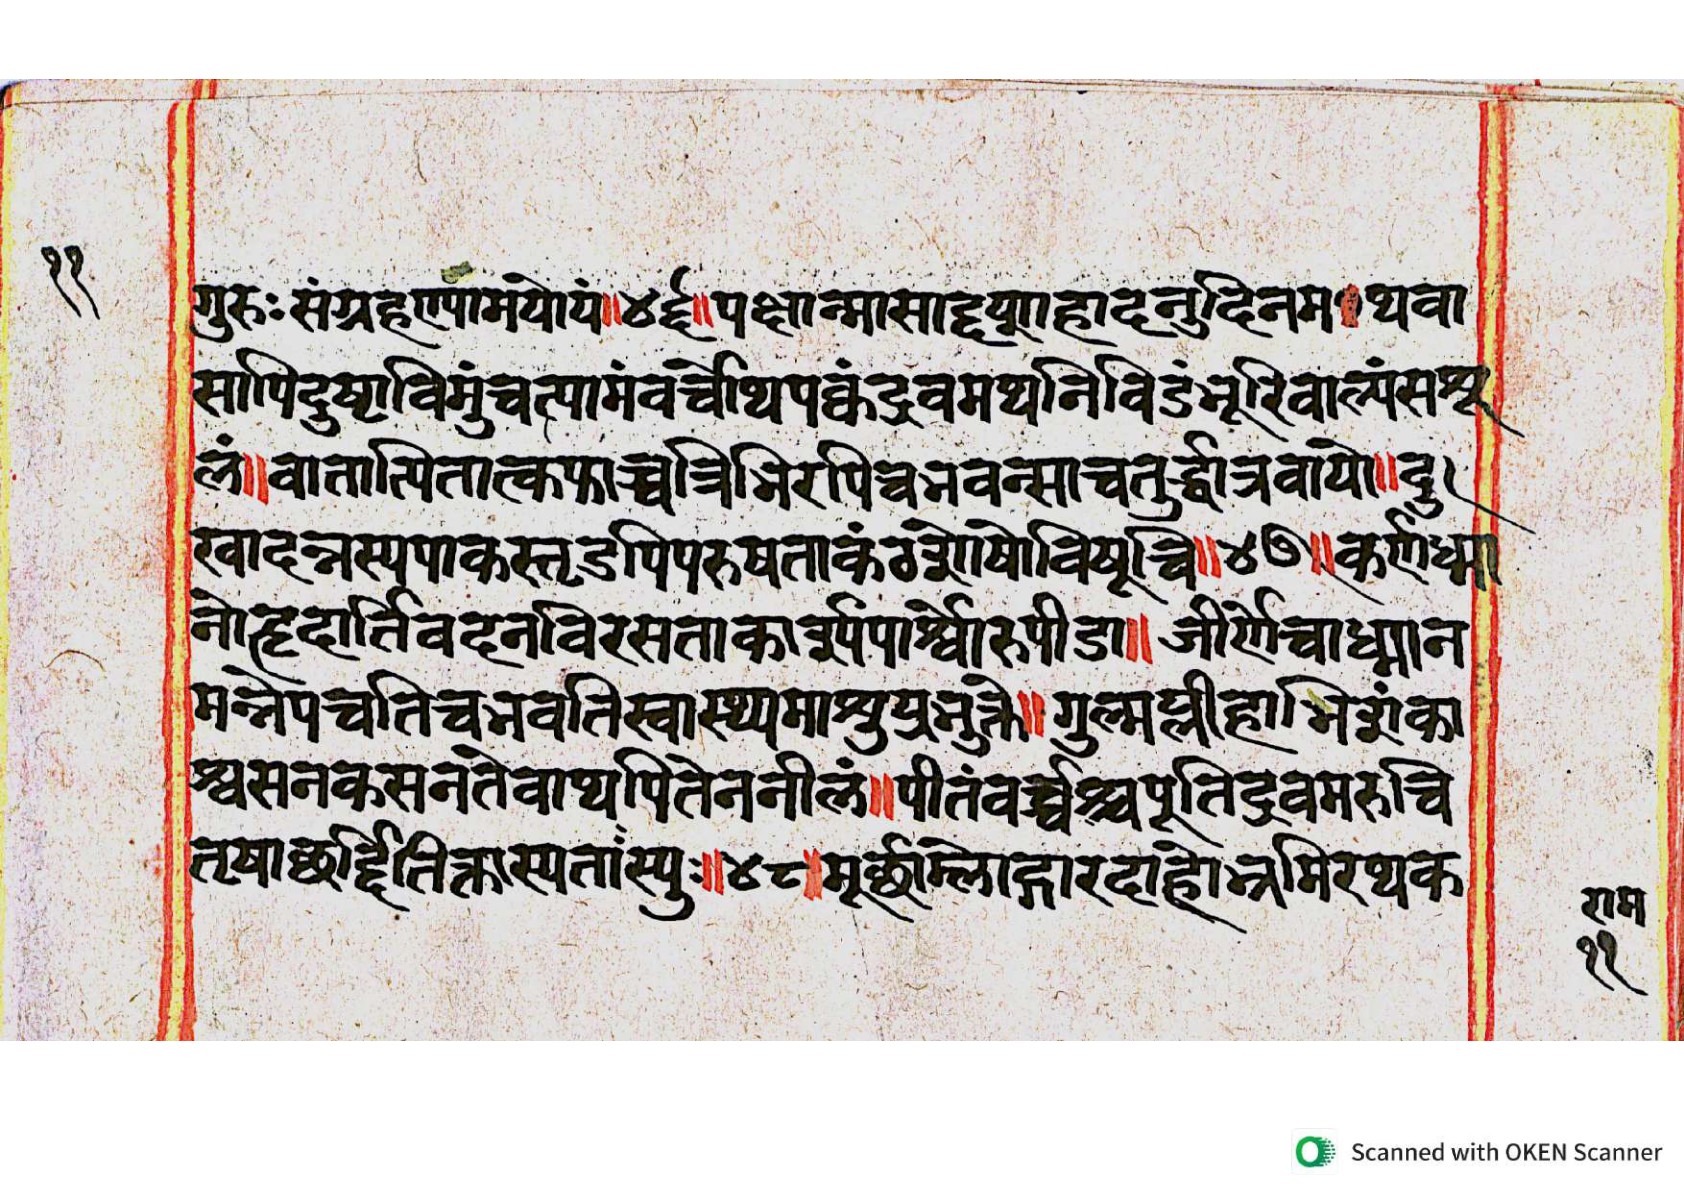 ११
गुरुः संग्रहण्यामयोयं॥४६॥पक्षान्मासाद्दृयुगाहादनुदिनमथवा
सापिदुष्टाविमुंचत्यामंवर्चोथपक्वंद्रवमथनिविडंभूरिवाल्पंसशू
लं॥वातात्पितात्कफाच्चत्रिभिरपिचभवन्साचतुर्द्धात्रवायो॥दु।
खादन्नस्यपाकस्तृडपिपरुषताकंठशोषोविषूचि॥४७॥कर्णध्मा
नोहृदार्तिवदनविरसताकार्श्यपार्श्वोरुपीडा॥जीर्णेचाध्मान
मन्नेपचतिचभवतिस्वास्थ्यमाशुप्रभुक्ते॥गुल्मप्लीहाभिशंका
श्वसनकसनतेवाथपितेननीलं॥पीतंवर्च्चश्चपूतिद्रवमरुचि
तृषाछर्द्दितिक्तास्यतांस्युः॥४८॥मूर्छाम्लोद्गारदाहोन्नमिरथक
राम
११
Scanned with OKEN Scanner